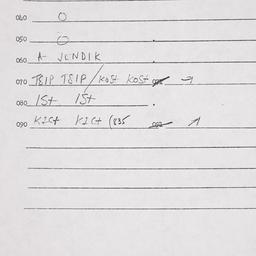 040 O
050 O
060 A- JENDIK
070 TSIP TSIP / KOST KOST →
080 1St 1St
090 KICt KICt (835